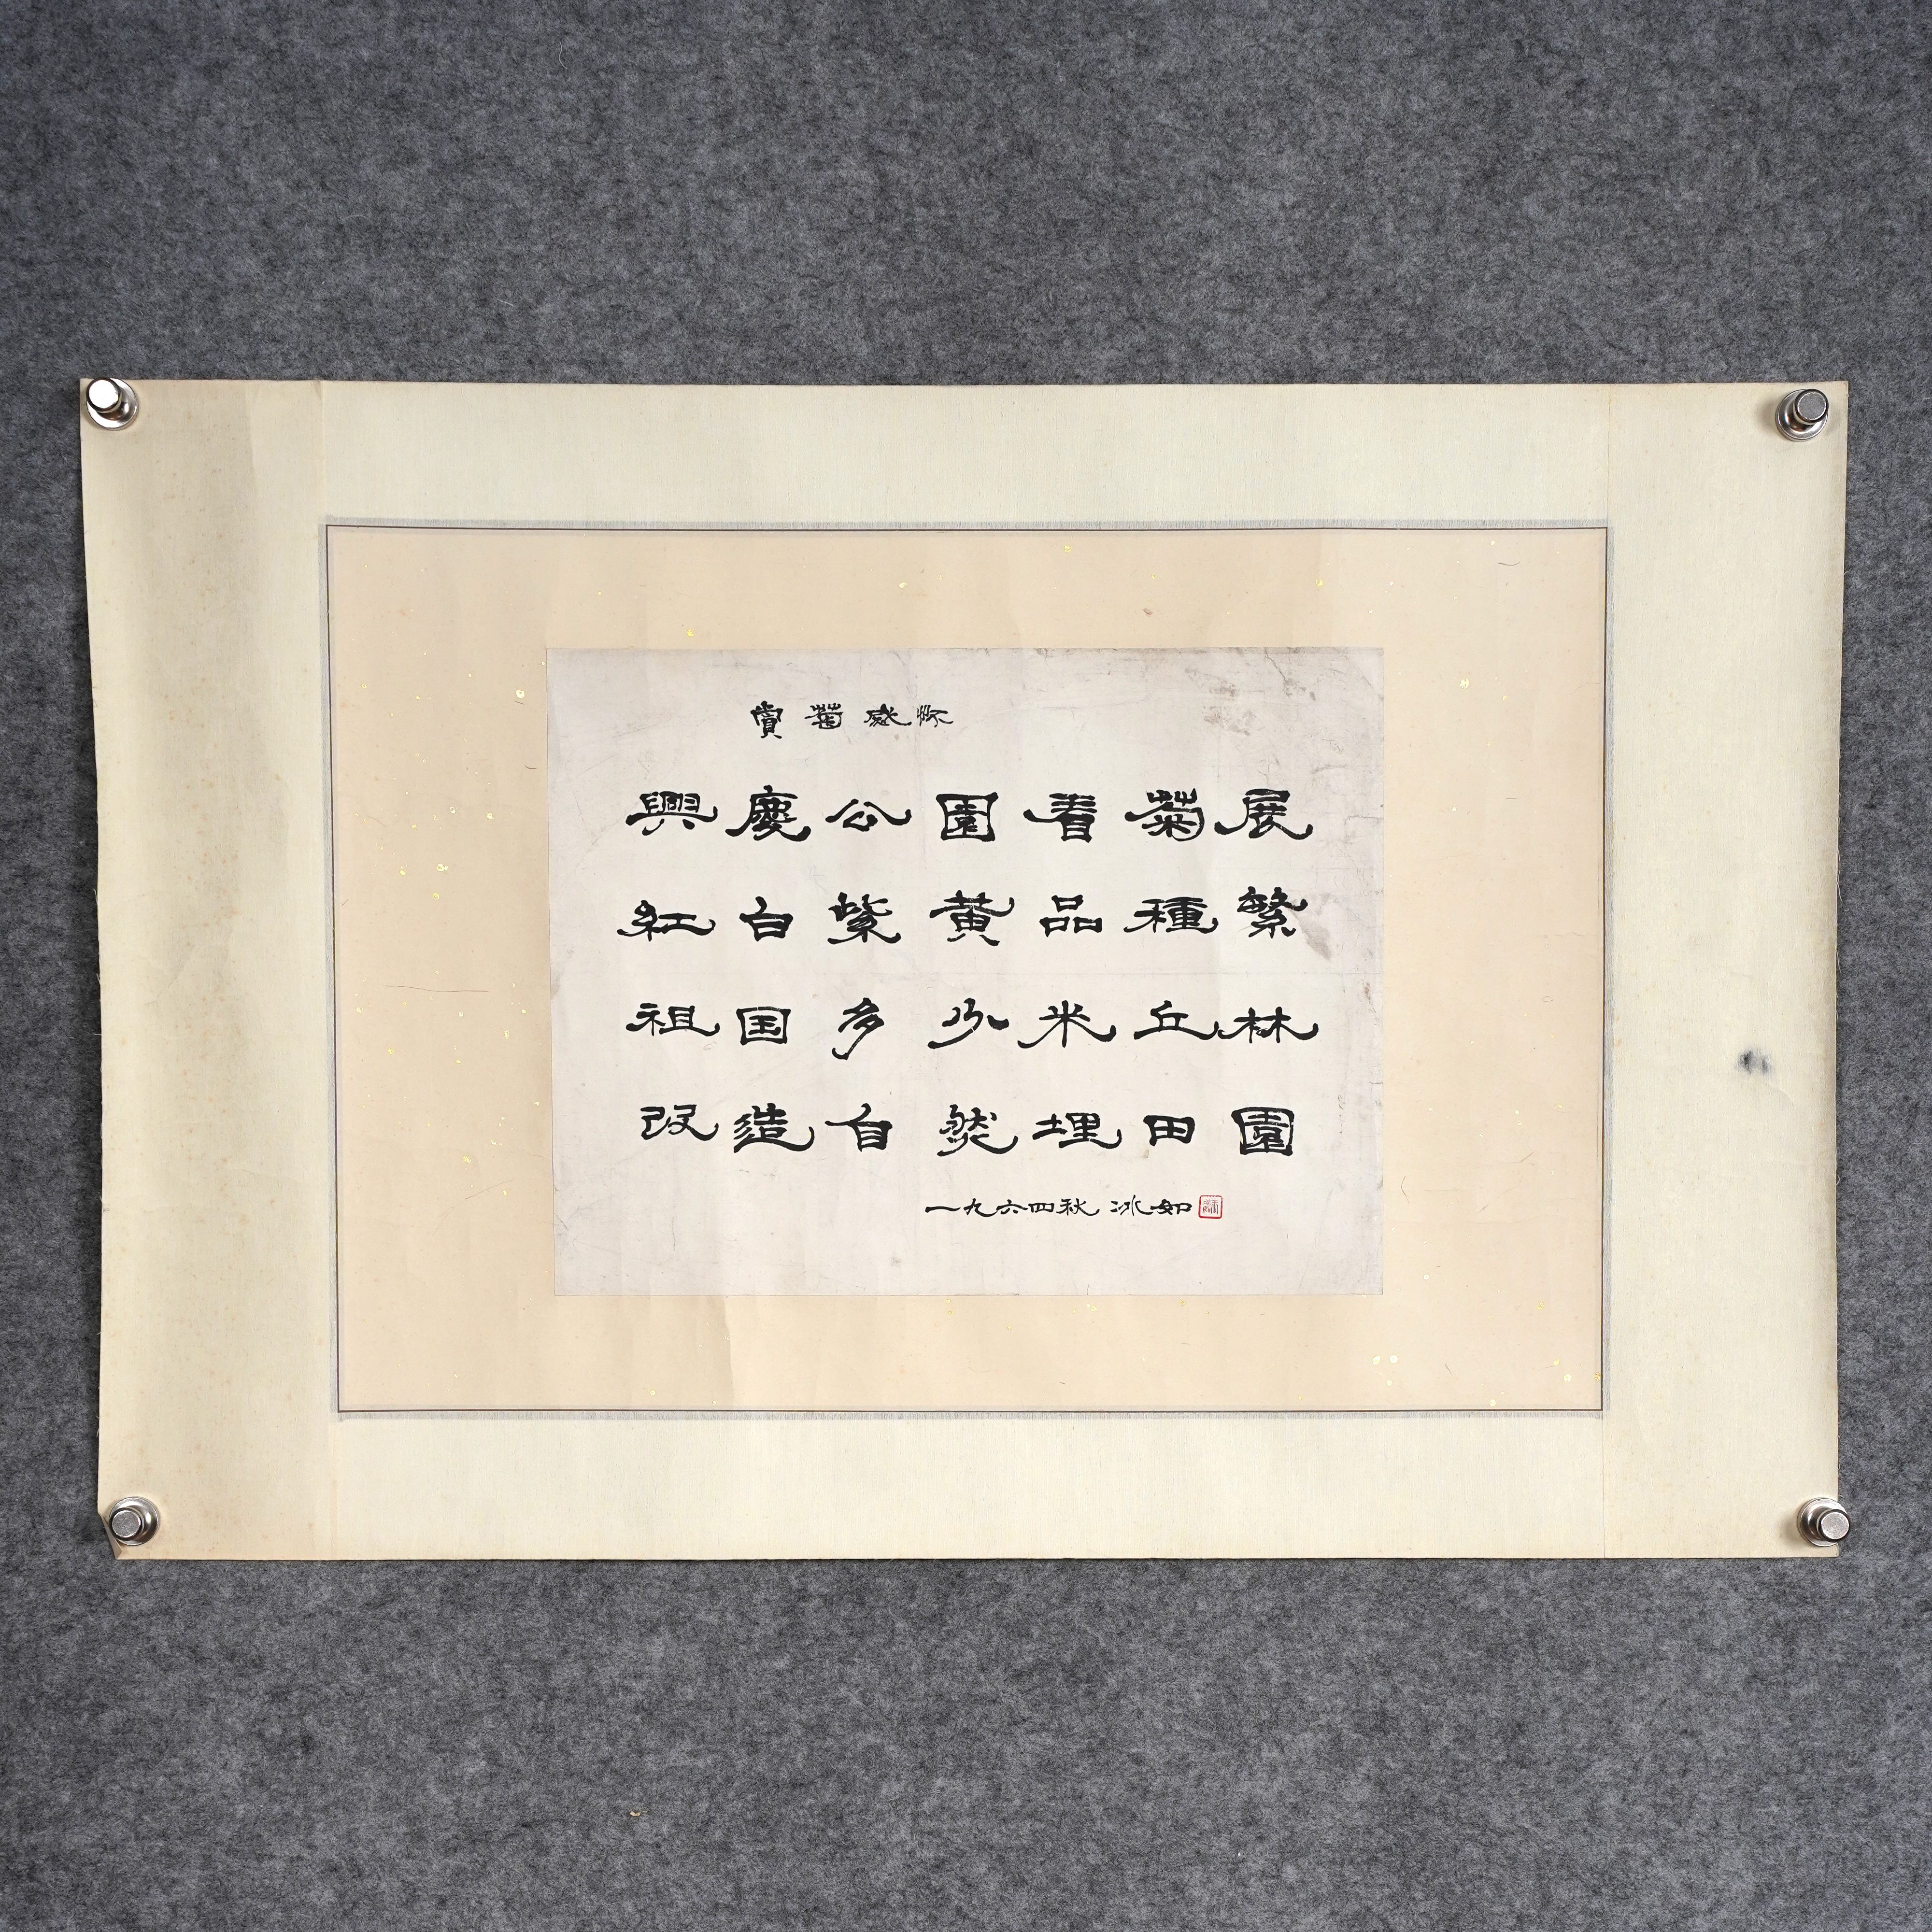 賞菊感怀
興慶公園看菊展
紅白紫黄品種繁
祖国多少米丘林
改造自然埋田園
一九六四秋 冰如